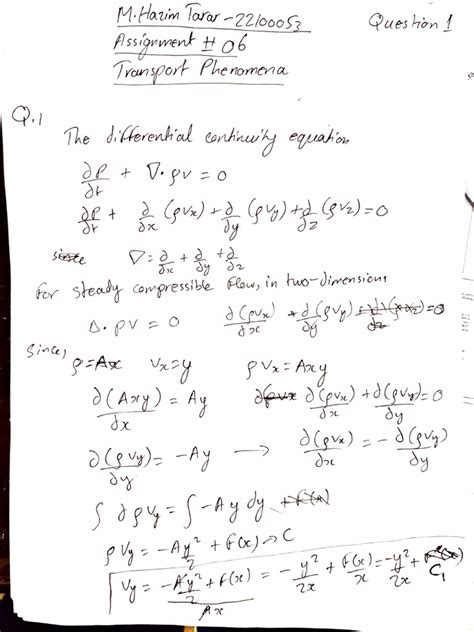 M. Hazim Tarar - 22100053
Question 1
Assignment # 06
Transport Phenomena
Q.1
The differential continuity equation
∂ρ/∂t + ∇·ρv = 0
∂ρ/∂t + ∂/∂x (ρvx) + ∂/∂y (ρvy) + ∂/∂z (ρvz) = 0
since ∇ = ∂/∂x + ∂/∂y + ∂/∂z
for steady compressible flow, in two-dimensions
Δ·ρv = 0 ∂(ρvx)/∂x + ∂(ρvy)/∂y = 0
Since,
ρ = Ax vx = y ρvx = Axy
∂(Axy)/∂x = Ay ∂(ρvx)/∂x + ∂(ρvy)/∂y = 0
∂(ρvy)/∂y = -Ay → ∂(ρvx)/∂x = -∂(ρvy)/∂y
∫ ∂ρvy = ∫ -Ay dy
ρvy = -Ay²/2 + f(x) → C
vy = (-Ay²/2 + f(x))/Ax = -y²/2x + f(x)/x = -y²/2x + C1